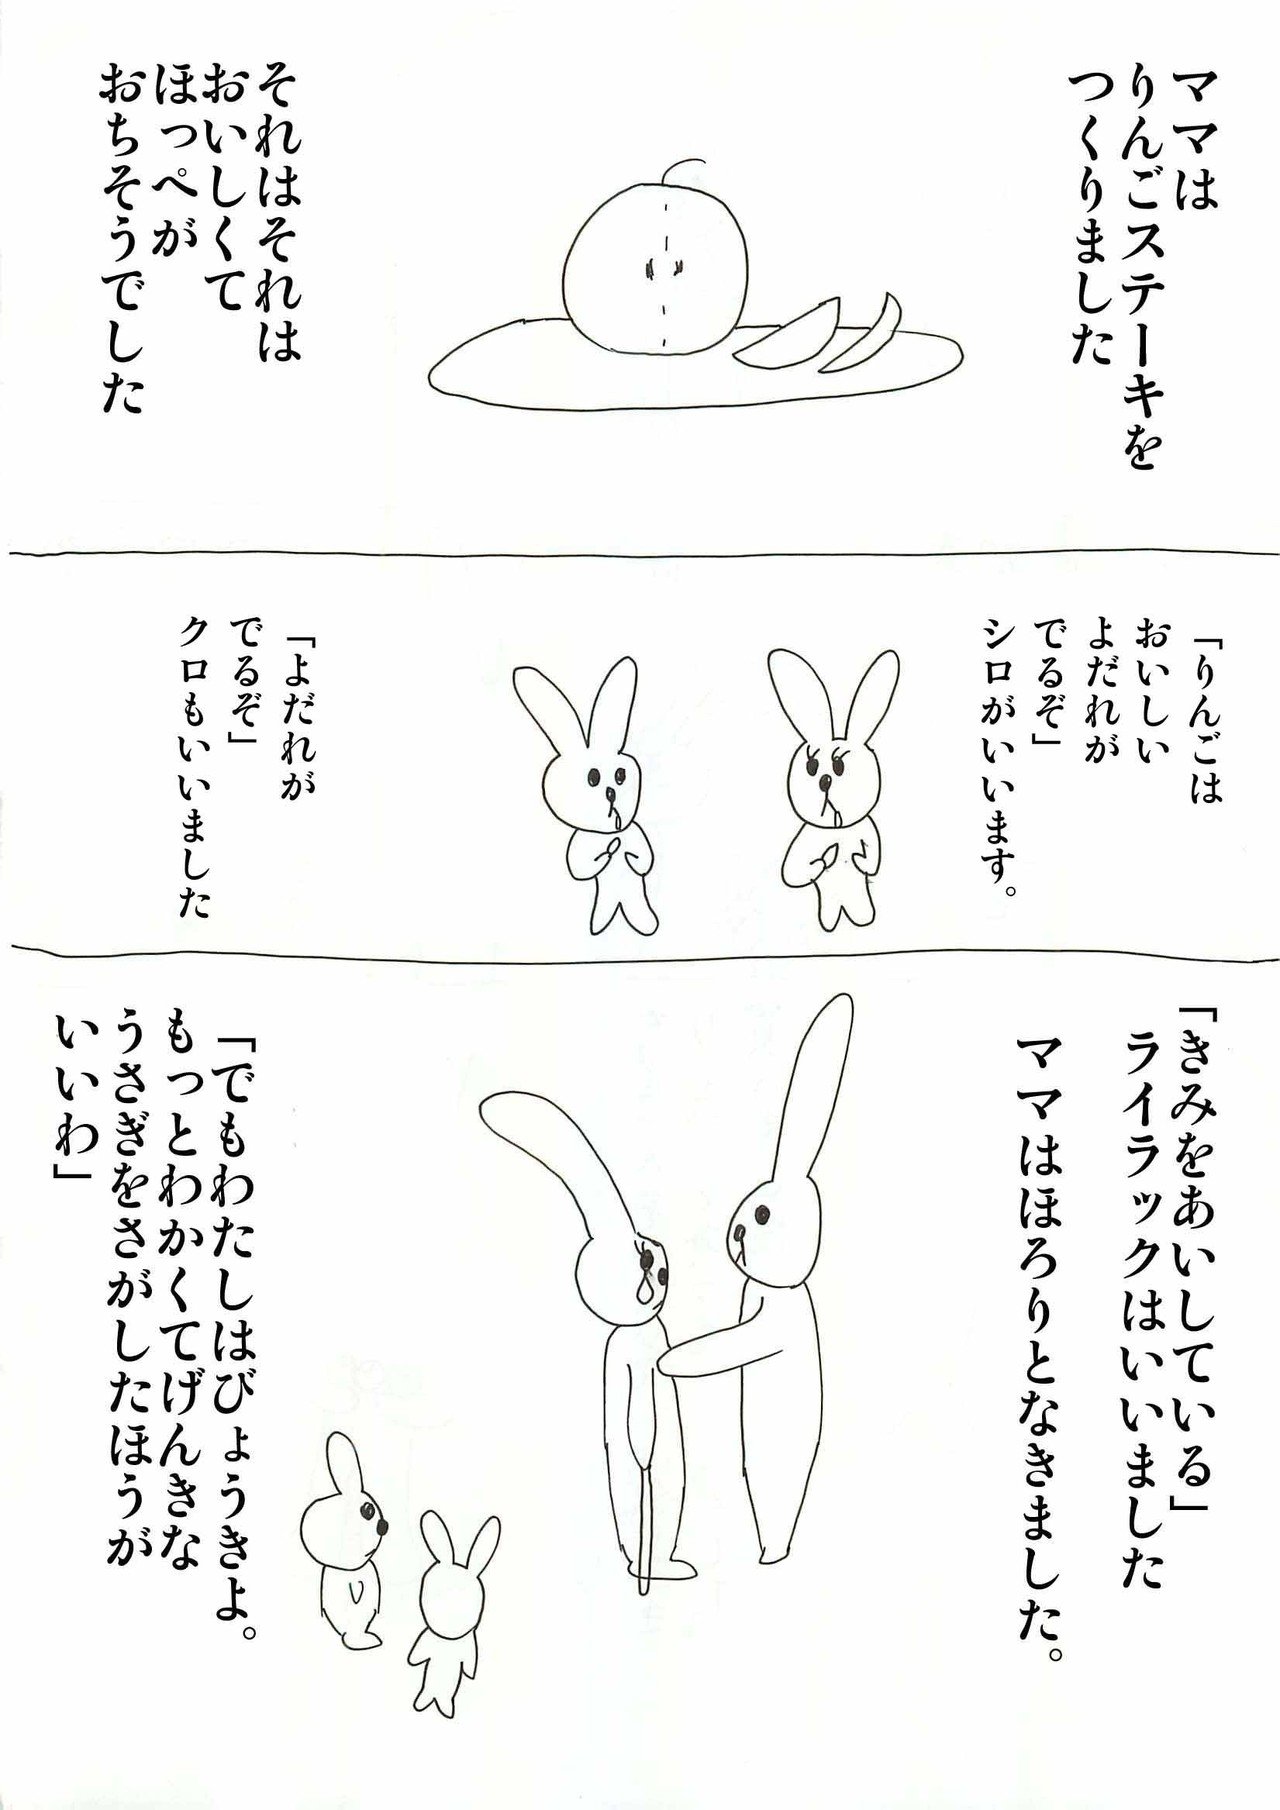 ママは
りんごステーキを
つくりました
それはそれは
おいしくて
ほっぺが
おちそうでした
「りんごは
おいしい
よだれが
でるぞ」
シロがいいます。
「よだれが
でるぞ」
クロもいいました
「きみをあいしている」
ライラックはいいました
ママはほろりとなきました。
「でもわたしはびょうきよ。
もっとわかくてげんきな
うさぎをさがしたほうが
いいわ」